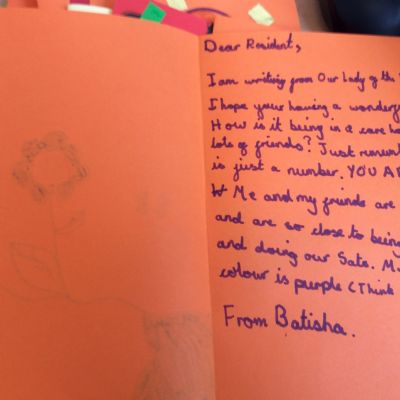 Dear Resident,
I am writing from Our Lady of the
I hope your having a
How is it being in a care
lots of friends? Just
is just a number. YOU
Me and my friends are
and are so close to being
and doing our Sats.
colour is purple (Think
From Batisha.